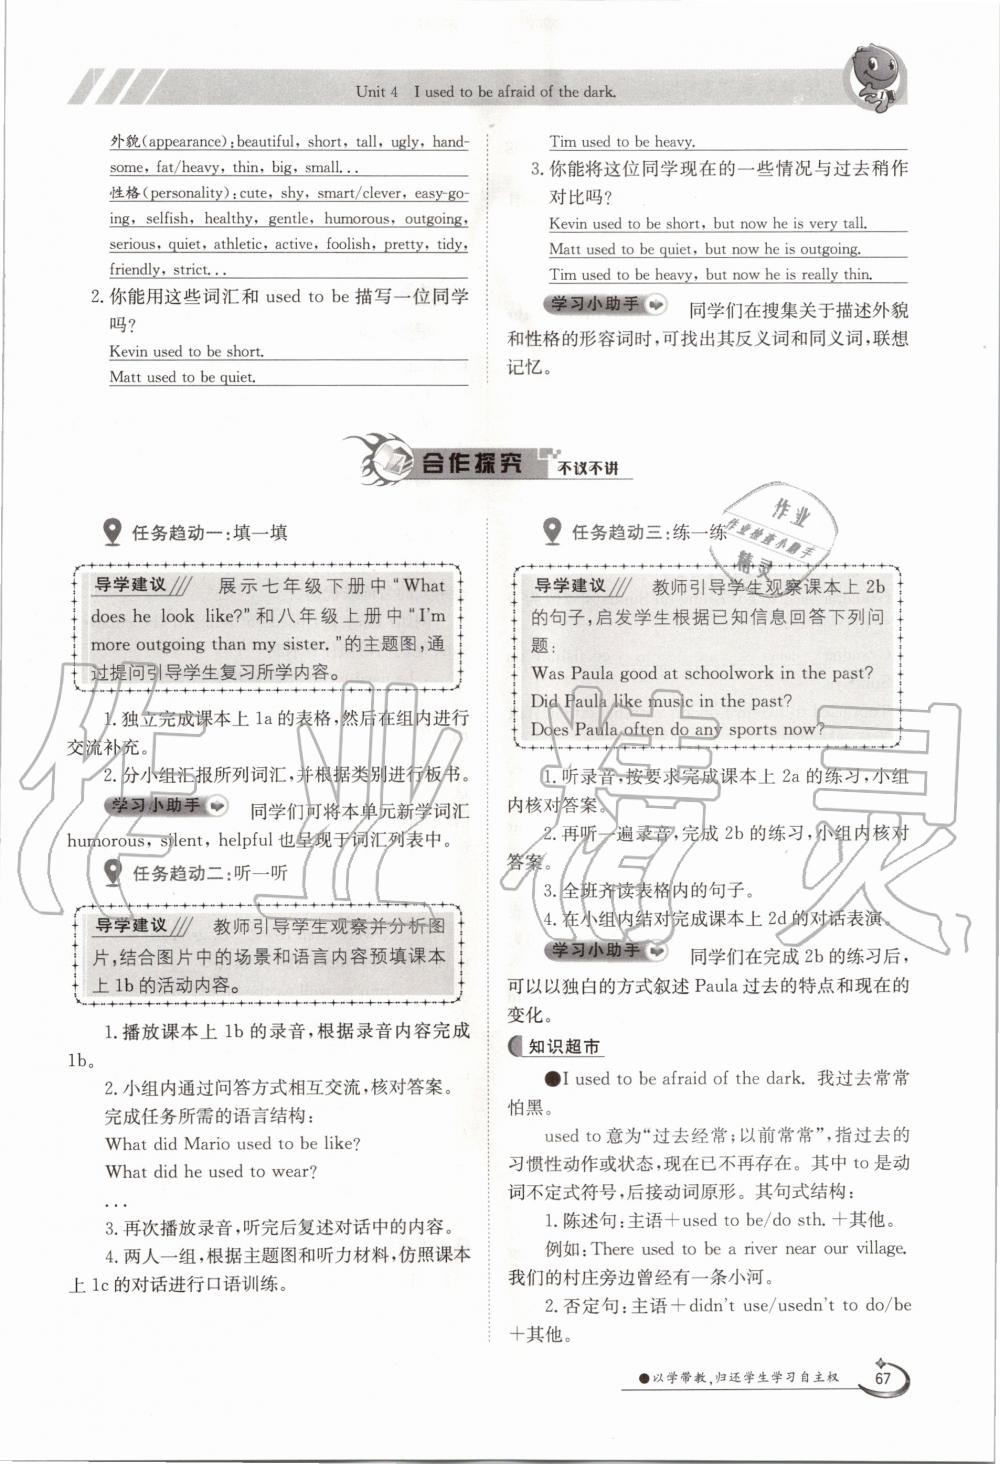 Unit 4 I used to be afraid of the dark.
外貌(appearance):beautiful, short, tall, ugly, hand-
some, fat/heavy, thin, big, small...
性格(personality):cute, shy, smart/clever, easy-go-
ing, selfish, healthy, gentle, humorous, outgoing,
serious, quiet, athletic, active, foolish, pretty, tidy,
friendly, strict...
2. 你能用这些词汇和 used to be 描写一位同学
吗?
Kevin used to be short.
Matt used to be quiet.
Tim used to be heavy.
3. 你能将这位同学现在的一些情况与过去稍作
对比吗?
Kevin used to be short, but now he is very tall.
Matt used to be quiet, but now he is outgoing.
Tim used to be heavy, but now he is really thin.
学习小助手 同学们在搜集关于描述外貌
和性格的形容词时,可找出其反义词和同义词,联想
记忆。
合作探究 不议不讲
任务趋动一:填一填
导学建议 展示七年级下册中“What
does he look like?”和八年级上册中“I'm
more outgoing than my sister.”的主题图,通
过提问引导学生复习所学内容。
1. 独立完成课本上 1a 的表格,然后在组内进行
交流补充。
2. 分小组汇报所列词汇,并根据类别进行板书。
学习小助手 同学们可将本单元新学词汇
humorous, silent, helpful 也呈现于词汇列表中。
任务趋动二:听一听
导学建议 教师引导学生观察并分析图
片,结合图片中的场景和语言内容预填课本
上 1b 的活动内容。
1. 播放课本上 1b 的录音,根据录音内容完成
1b。
2. 小组内通过问答方式相互交流,核对答案。
完成任务所需的语言结构:
What did Mario used to be like?
What did he used to wear?
...
3. 再次播放录音,听完后复述对话中的内容。
4. 两人一组,根据主题图和听力材料,仿照课本
上 1c 的对话进行口语训练。
任务趋动三:练一练
导学建议 教师引导学生观察课本上 2b
的句子,启发学生根据已知信息回答下列问
题:
Was Paula good at schoolwork in the past?
Did Paula like music in the past?
Does Paula often do any sports now?
1. 听录音,按要求完成课本上 2a 的练习,小组
内核对答案。
2. 再听一遍录音,完成 2b 的练习,小组内核对
答案。
3. 全班齐读表格内的句子。
4. 在小组内结对完成课本上 2d 的对话表演。
学习小助手 同学们在完成 2b 的练习后,
可以以独白的方式叙述 Paula 过去的特点和现在的
变化。
知识超市
●I used to be afraid of the dark. 我过去常常
怕黑。
used to 意为“过去经常;以前常常”,指过去的
习惯性动作或状态,现在已不再存在。其中 to 是动
词不定式符号,后接动词原形。其句式结构:
1. 陈述句:主语+used to be/do sth. +其他。
例如:There used to be a river near our village.
我们的村庄旁边曾经有一条小河。
2. 否定句:主语+didn't use/usedn't to do/be
+其他。
●以学带教,归还学生学习自主权
67
作业
作业检查小助手
精灵
作业精灵